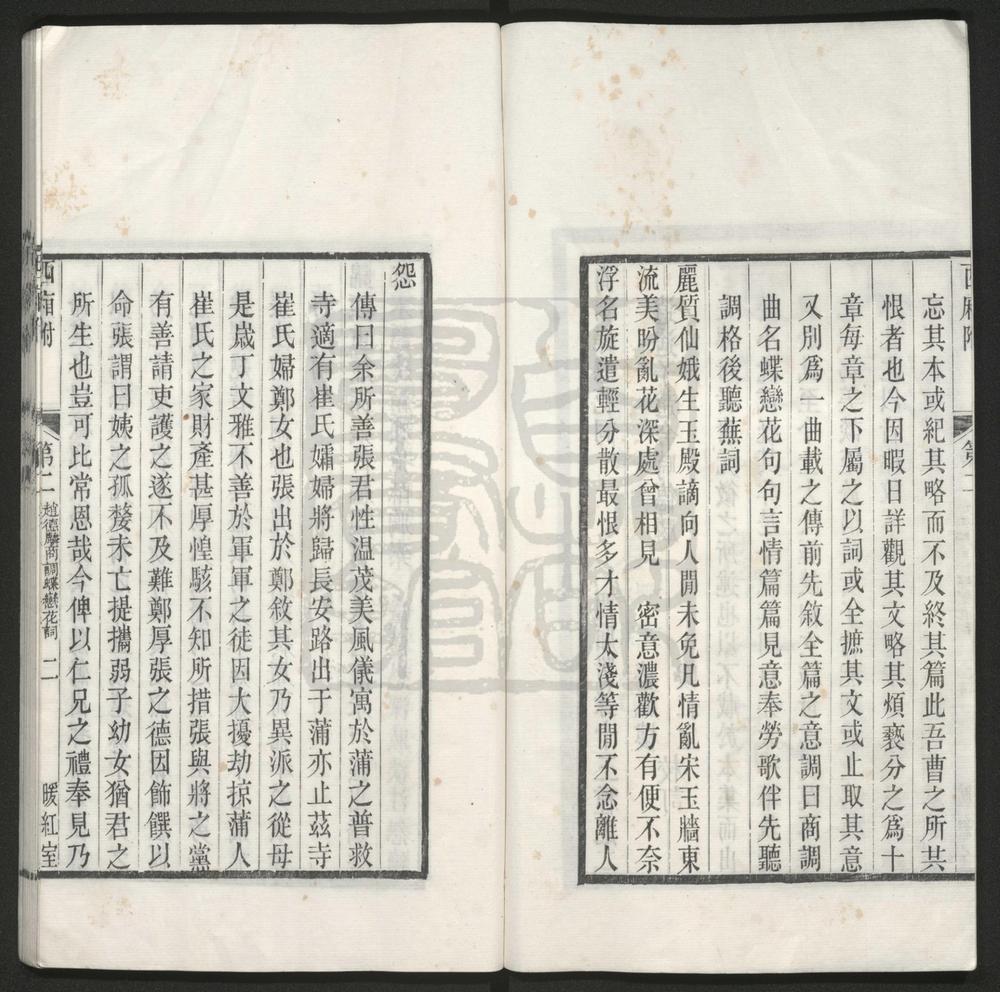 西廂附
第二
忘其本或紀其略而不及終其篇此吾曹之所共
恨者也今因暇日詳觀其文略其煩褻分之爲十
章每章之下屬之以詞或全摭其文或止取其意
又別爲一曲載之傳前先敘全篇之意調曰商調
曲名蝶戀花句句言情篇篇見意奉勞歌伴先聽
調格後聽蕪詞
麗質仙娥生玉殿謫向人閒未免凡情亂宋玉牆東
流美盼亂花深處曾相見 密意濃歡方有便不奈
浮名旋遣輕分散最恨多才情太淺等閒不念離人
怨
傳曰余所善張君性温茂美風儀寓於蒲之普救
寺適有崔氏孀婦將歸長安路出于蒲亦止茲寺
崔氏婦鄭女也張出於鄭敘其女乃異派之從母
是歲丁文雅不善於軍軍之徒因大擾劫掠蒲人
崔氏之家財產甚厚惶駭不知所措張與將之黨
有善請吏護之遂不及難鄭厚張之德因飾饌以
命張謂曰姨之孤嫠未亡提攜弱子幼女猶君之
所生也豈可比常恩哉今俾以仁兄之禮奉見乃
西廂附
第二 趙德麟商調蝶戀花詞 二
暖紅室